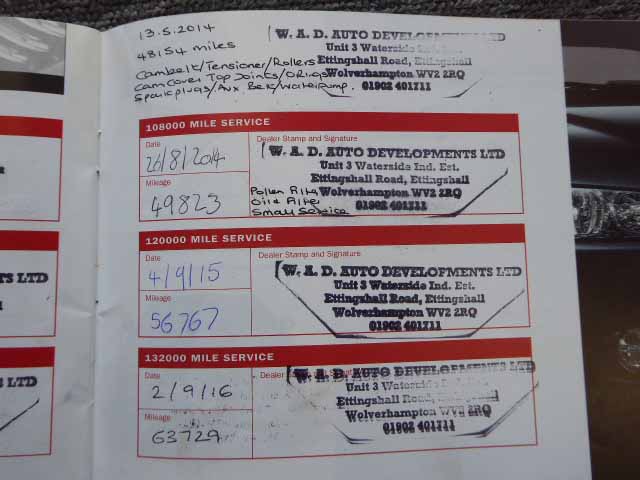 13.5.2014
48154 miles
Cambelt/Tensioner/Rollers
Cam Cover Top Joints/O Rings
Spark plugs/Aux Belt/Waterpump.
W. A. D. AUTO DEVELOPMENTS LTD
Unit 3 Waterside Ind. Est.
Ettingshall Road, Ettingshall
Wolverhampton WV2 2RQ
01902 401711
108000 MILE SERVICE
Date
26/8/2014
Mileage
49823
Dealer Stamp and Signature
W. A. D. AUTO DEVELOPMENTS LTD
Unit 3 Waterside Ind. Est.
Ettingshall Road, Ettingshall
Wolverhampton WV2 2RQ
01902 401711
Pollen Filter
Oil & Filter
Small Service
120000 MILE SERVICE
Date
4/9/15
Mileage
56767
Dealer Stamp and Signature
W. A. D. AUTO DEVELOPMENTS LTD
Unit 3 Waterside Ind. Est.
Ettingshall Road, Ettingshall
Wolverhampton WV2 2RQ
01902 401711
132000 MILE SERVICE
Date
2/9/16
Mileage
63729
Dealer Stamp and Signature
W. A. D. AUTO DEVELOPMENTS LTD
Unit 3 Waterside
Ettingshall Road, Ettingshall
Wolverhampton WV2 2RQ
01902 401711
TS LTD
S LTD